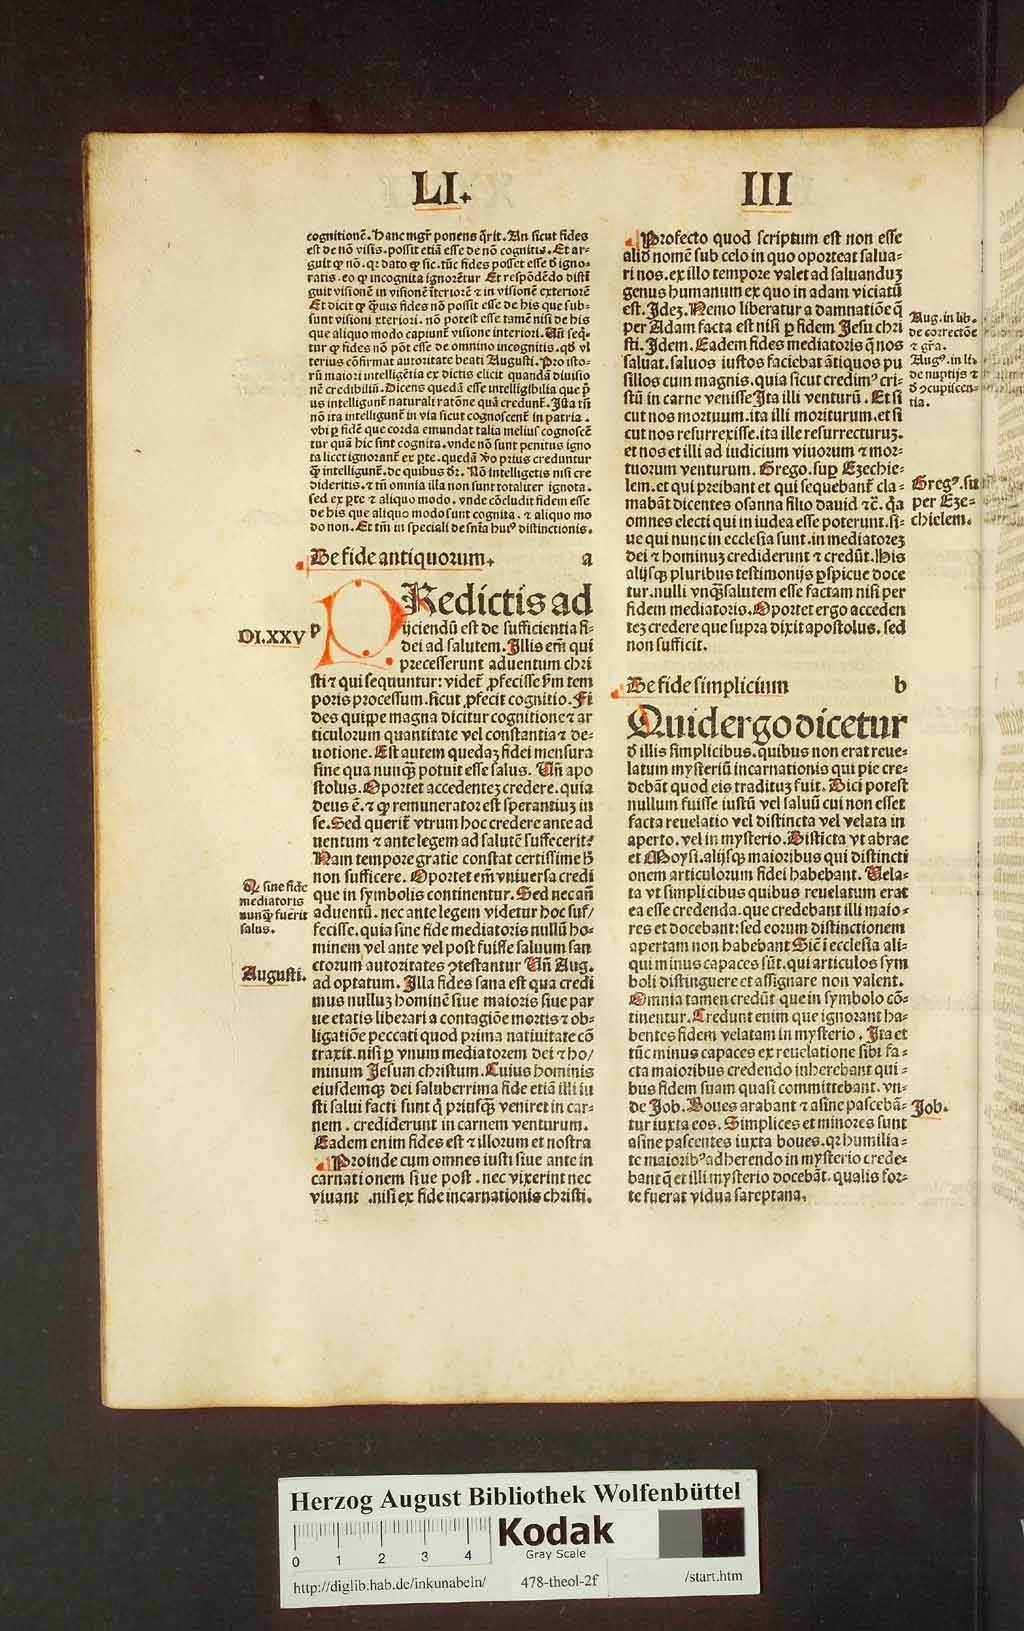 LI.
III
cognitionē. Hanc mgr̄ ponens q̄rit. An sicut fides
est de nō visis. possit etiā esse de nō cognitis. Et ar-
guit ꝙ nō. qꝛ dato ꝙ sic. tūc fides posset esse ð igno-
ratis. eo ꝙ incognita ignorētur Et respōdēdo disti
guit visionē in visionē īteriorē ⁊ in visionē exteriorē
Et dicit ꝙ ꝙuis fides nō possit esse de his que sub-
sunt visioni exteriori. nō potest esse tamē nisi de his
que aliquo modo capiunt̄ visione interiori. Un̄ seq̄-
tur ꝙ fides nō pōt esse de omnino incognitis. qð vl
terius cōfirmat autoritate beati Augusti. Pro isto-
rū maiori intelligētia ex dictis elicit quandā diuisio
nē credibiliū. Dicens quedā esse intelligibilia que p̄
us intelligunt̄ naturali ratōne quā credunt̄. Ista tn̄
nō ita intelligunt̄ in via sicut cognoscent̄ in patria.
vbi ꝑ fidē que corda emundat talia melius cognoscē
tur quā hic sint cognita. vnde nō sunt penitus igno
ta licet ignorant̄ ex pte. quedā v̄o prius creduntur
ꝙ intelligunt̄. de quibus dr̄. Nō intelligetis nisi cre
dideritis. ⁊ tn̄ omnia illa non sunt totaliter ignota.
sed ex ꝑte ⁊ aliquo modo. vnde cōcludit fidem esse
de his que aliquo modo sunt cognita. ⁊ aliquo mo
do non. Et tn̄ in speciali de sn̄ia huiꝰ distinctionis.
De fide antiquorum. a
DI.XXV
p
PRedictis ad
ijciendū est de sufficientia fi-
dei ad salutem. Illis em̄ qui
precesserunt aduentum chri
sti ⁊ qui sequuntur: videt̄ ꝓfecisse ẜm tem
poris processum. sicut ꝓfecit cognitio. Fi
des quippe magna dicitur cognitione ⁊ ar
ticulorum quantitate vel constantia ⁊ de-
uotione. Est autem quedaꝫ fidei mensura
sine qua nunqꝫ potuit esse salus. Un̄ apo
stolus. Oportet accedenteꝫ credere. quia
deus ē. ⁊ ꝙ remunerator est sperantiuꝫ in
se. Sed querit̄ vtrum hoc credere ante ad
uentum ⁊ ante legem ad salutē suffecerit?
Nam tempore gratie constat certissime h̄
non sufficere. Oportet em̄ vniuersa credi
que in symbolis continentur. Sed nec an̄
aduentū. nec ante legem videtur hoc suf/
fecisse. quia sine fide mediatoris nullū ho-
minem vel ante vel post fuisse saluum san
ctorum autoritates ꝯtestantur Un̄ Aug.
ad optatum. Illa fides sana est qua credi
mus nulluꝫ hominē siue maioris siue par
ue etatis liberari a contagiōe mortis ⁊ ob-
ligatiōe peccati quod prima natiuitate cō
traxit. nisi ꝑ vnum mediatorem dei ⁊ ho/
minum Jesum christum. Cuius hominis
eiusdemqꝫ dei saluberrima fide etiā illi iu
sti salui facti sunt q̄ priusqꝫ veniret in car-
nem. crediderunt in carnem venturum.
Eadem enim fides est ⁊ illorum et nostra
Proinde cum omnes iusti siue ante in
carnationem siue post. nec vixerint nec
viuant. nisi ex fide incarnationis christi.
Qꝫ sine fide
mediatoris
nunqꝫ fuerit
salus.
Augusti.
Profecto quod scriptum est non esse
aliđ nomē sub celo in quo oporteat salua-
ri nos. ex illo tempore valet ad saluanduꝫ
genus humanum ex quo in adam viciatū
est. Ideꝫ. Nemo liberatur a damnatiōe q̄
per Adam facta est nisi ꝑ fidem Jesu chri
sti. Idem. Eadem fides mediatoris q̄ nos
saluat. saluos iustos faciebat ātiquos pu
sillos cum magnis. quia sicut credimꝰ cri-
stū in carne venisse Ita illi venturū. Et si
cut nos mortuum. ita illi moriturum. et si
cut nos resurrexisse. ita ille resurrecturuꝫ.
et nos et illi ad iudicium viuorum ⁊ mor-
tuorum venturum. Grego. suꝑ Ezechie-
lem. et qui preibant et qui sequebant̄ cla-
mabāt dicentes osanna filio dauid ⁊c̄. q̄a
omnes electi qui in iudea esse poterunt. si-
ue qui nunc in ecclesia sunt. in mediatoreꝫ
dei ⁊ hominuꝫ crediderunt ⁊ credūt. His
alijsqꝫ pluribus testimonijs ꝑspicue doce
tur. nulli vnqꝫ salutem esse factam nisi per
fidem mediatoris. Oportet ergo acceden
teꝫ credere que supra dixit apostolus. sed
non sufficit.
Aug. in lib.
de correctōe
⁊ gr̄a.
Augꝰ. in li.
de nuptijs ⁊
ð ꝯcupiscen-
tia.
Gregꝰ. su
per Eze-
chielem.
De fide simplicium b
Quid ergo dicetur
ð illis simplicibus. quibus non erat reue-
latum mysteriū incarnationis qui pie cre-
debāt quod eis traditur fuit. Dici potest
nullum fuisse iustū vel saluū cui non esset
facta reuelatio vel distincta vel velata in
aperto. vel in mysterio. Disticta vt abrae
et Moysi. alijsqꝫ maioribus qui distincti
onem articulorum fidei habebant. Vela-
ta vt simplicibus quibus reuelatum erat
ea esse credenda. que credebant illi maio-
res et docebant: sed eorum distinctionem
apertam non habebant Sic̄ i ecclesia ali-
qui minus capaces sūt. qui articulos sym
boli distinguere et assignare non valent.
Omnia tamen credūt que in symbolo cō-
tinentur. Credunt enim que ignorant ha-
bentes fidem velatam in mysterio. Ita et
tūc minus capaces ex reuelatione sibi fa-
cta maioribus credendo inherebant qui-
bus fidem suam quasi committebant. vn-
de Job. Boues arabant ⁊ asine pascebā-
tur iuxta eos. Simplices et minores sunt
asine pascentes iuxta boues. qꝛ humilia-
te maioribꝰ adherendo in mysterio crede-
bant q̄ et illi mysterio docebāt. qualis for-
te fuerat vidua sareptana.
Job.
Herzog August Bibliothek Wolfenbüttel
0 1 2 3 4
Kodak
Gray Scale
http://diglib.hab.de/inkunabeln/ 478-theol-2f /start.htm